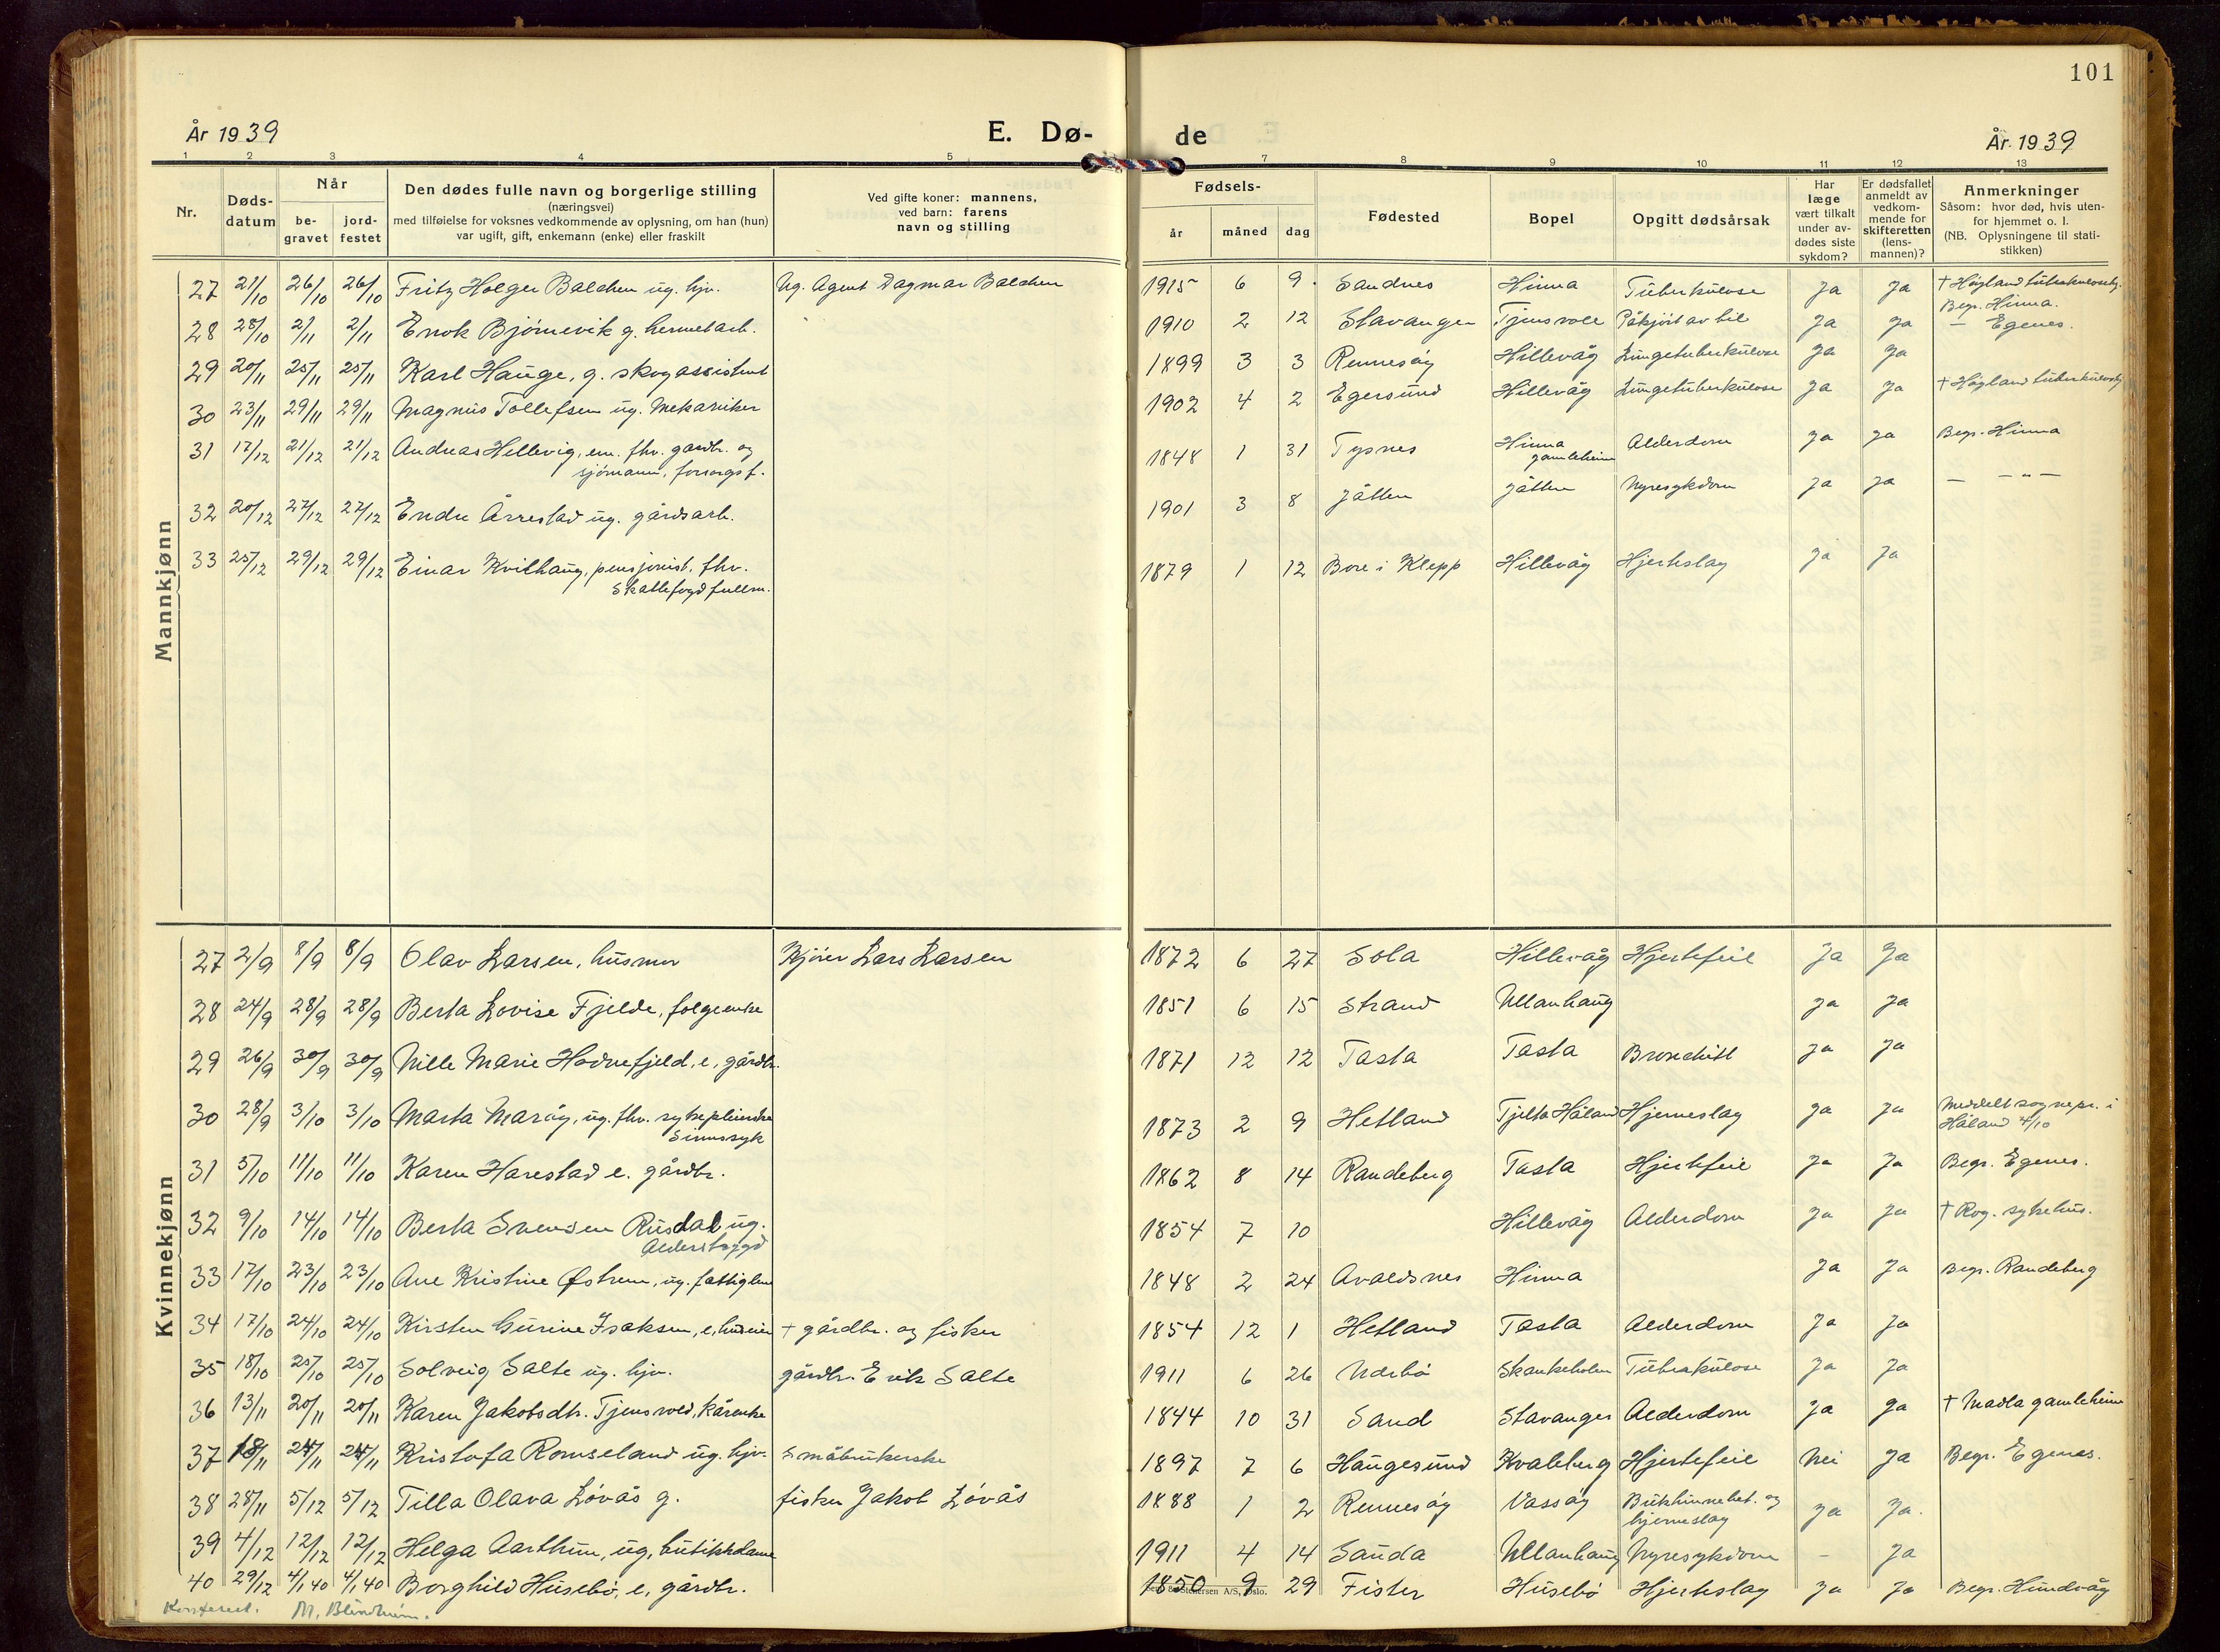 101
År 1939
E. Dø-
de
År 1939
1 2 3 4 5 7 8 9 10 11 12 13
Nr.
Døds-
datum
Når
be-
gravet
jord-
festet
Den dødes fulle navn og borgerlige stilling
(næringsvei)
med tilføielse for voksnes vedkommende av oplysning, om han (hun)
var ugift, gift, enkemann (enke) eller fraskilt
Ved gifte koner: mannens,
ved barn: farens
navn og stilling
Fødsels-
år måned dag
Fødested
Bopel
Opgitt dødsårsak
Har
læge
vært tilkalt
under av-
dødes siste
sykdom?
Er dødsfallet
anmeldt av
vedkom-
mende for
skifteretten
(lens-
mannen)?
Anmerkninger
Såsom: hvor død, hvis uten-
for hjemmet o. l.
(NB. Oplysningene til stati-
stikken)
Mannkjønn
27 21/10 26/10 26/10 Fritz Holger Balchen ug. hjv. Ug. Agent Dagmar Balchen 1915 6 9 Sandnes Hinna Tüberkülose Ja Ja + Høgland tüberkülosehj.
Begr. Hinna.
28 28/10 2/11 2/11 Enok Bjørnevik g. hermetarb. 1910 2 12 Stavanger Tjensvoll Påkjørt av bil Ja Ja — Egenes.
29 20/11 25/11 25/11 Karl Hauge, g. skogassistent 1899 3 3 Rennesøy Hillevåg Lungetuberkülose Ja Ja
30 23/11 29/11 29/11 Magnus Tollefsen ug. Mekaniker 1902 4 2 Egersund Hillevåg Lungetüberkülose Ja Ja + Høgland tüberkülosehj.
31 17/12 21/12 21/12 Andreas Hellevig, em. fhv. gardbr. og
sjømann, forsorgsf. 1848 1 31 Tysnes Hinna
gamleheim Alderdom Ja Ja Begr. Hinna
32 20/12 27/12 27/12 Endre Årrestad ug. gårdsarb. 1901 3 8 Jåtten Jåtten Nyresykdom Ja Ja — - " -
33 25/12 29/12 29/12 Einar Kvilhaug, pensjonist, fhv.
Skattefogdfullm. 1879 1 12 Bore i Klepp Hillevåg Hjerteslag Ja Ja
Kvinnekjønn
27 2/9 8/9 8/9 Olav Larsen, husmor Kjører Lars Larsen 1872 6 27 Sola Hillevåg Hjertefeil Ja Ja
28 24/9 28/9 28/9 Berta Lovise Fjelde, folgeenke 1851 6 15 Strand Ullanhaug Ja Ja
29 26/9 30/9 30/9 Nille Marie Hodnefjeld, e, gårdbr. 1871 12 12 Tasta Tasta Bronchitt Ja Ja
30 28/9 3/10 3/10 Marta Marøy, ug. fhv. sykepleierske
Sinnssyk 1873 2 9 Hetland Tjelta Håland Hjerneslag Ja Ja Meddelt sognepr. i
Håland 4/10
31 5/10 11/10 11/10 Karen Harestad e. gårdbr. 1862 8 14 Randeberg Tasta Hjertefeil Ja Ja Begr. Egenes.
32 9/10 14/10 14/10 Berta Svensen Rusdal ug.
Alderstrygd 1854 7 10 Hillevåg Alderdom Ja Ja + Rog. sykehus.
33 17/10 23/10 23/10 Ane Kristine Østrem, ug. fattiglem 1848 2 24 Avaldsnes Hinna Ja Ja Begr. Randeberg
34 17/10 24/10 24/10 Kirsten Gurine Isaksen, e, huseier + gårdbr. og fisker 1854 12 1 Hetland Tasta Alderdom Ja Ja
35 18/10 25/10 25/10 Solveig Salte ug. hjv. gårdbr. Erik Salte 1911 6 26 Nærbø Skankeholen Tüberkülose Ja Ja
36 13/11 20/11 20/11 Karen Jakobsdtr. Tjensvold, kårenke 1844 10 31 Sand Stavanger Alderdom Ja Ja + Madla gamleheim
37 18/11 24/11 24/11 Kristofa Romseland ug. hjv. Småbrukerske 1897 7 6 Haugesund Kvaleberg Hjertefeil Nei Ja Begr. Egenes.
38 28/11 5/12 5/12 Tilla Olava Løvås g. fisker Jakob Løvås 1888 1 2 Rennesøy Vassøy Bukhinnebet. og
hjerneslag Ja Ja.
39 4/12 12/12 12/12 Helga Aarthun, ug, butikkdame 1911 4 14 Sauda Ullanhaug Nyresykdom - Ja
40 29/12 4/1 40 4/1 40 Borghild Husebø, e, gårdbr. 1850 9 29 Fister Husebø Hjerteslag Ja Ja Begr. Hundvåg
M. Blindheim.